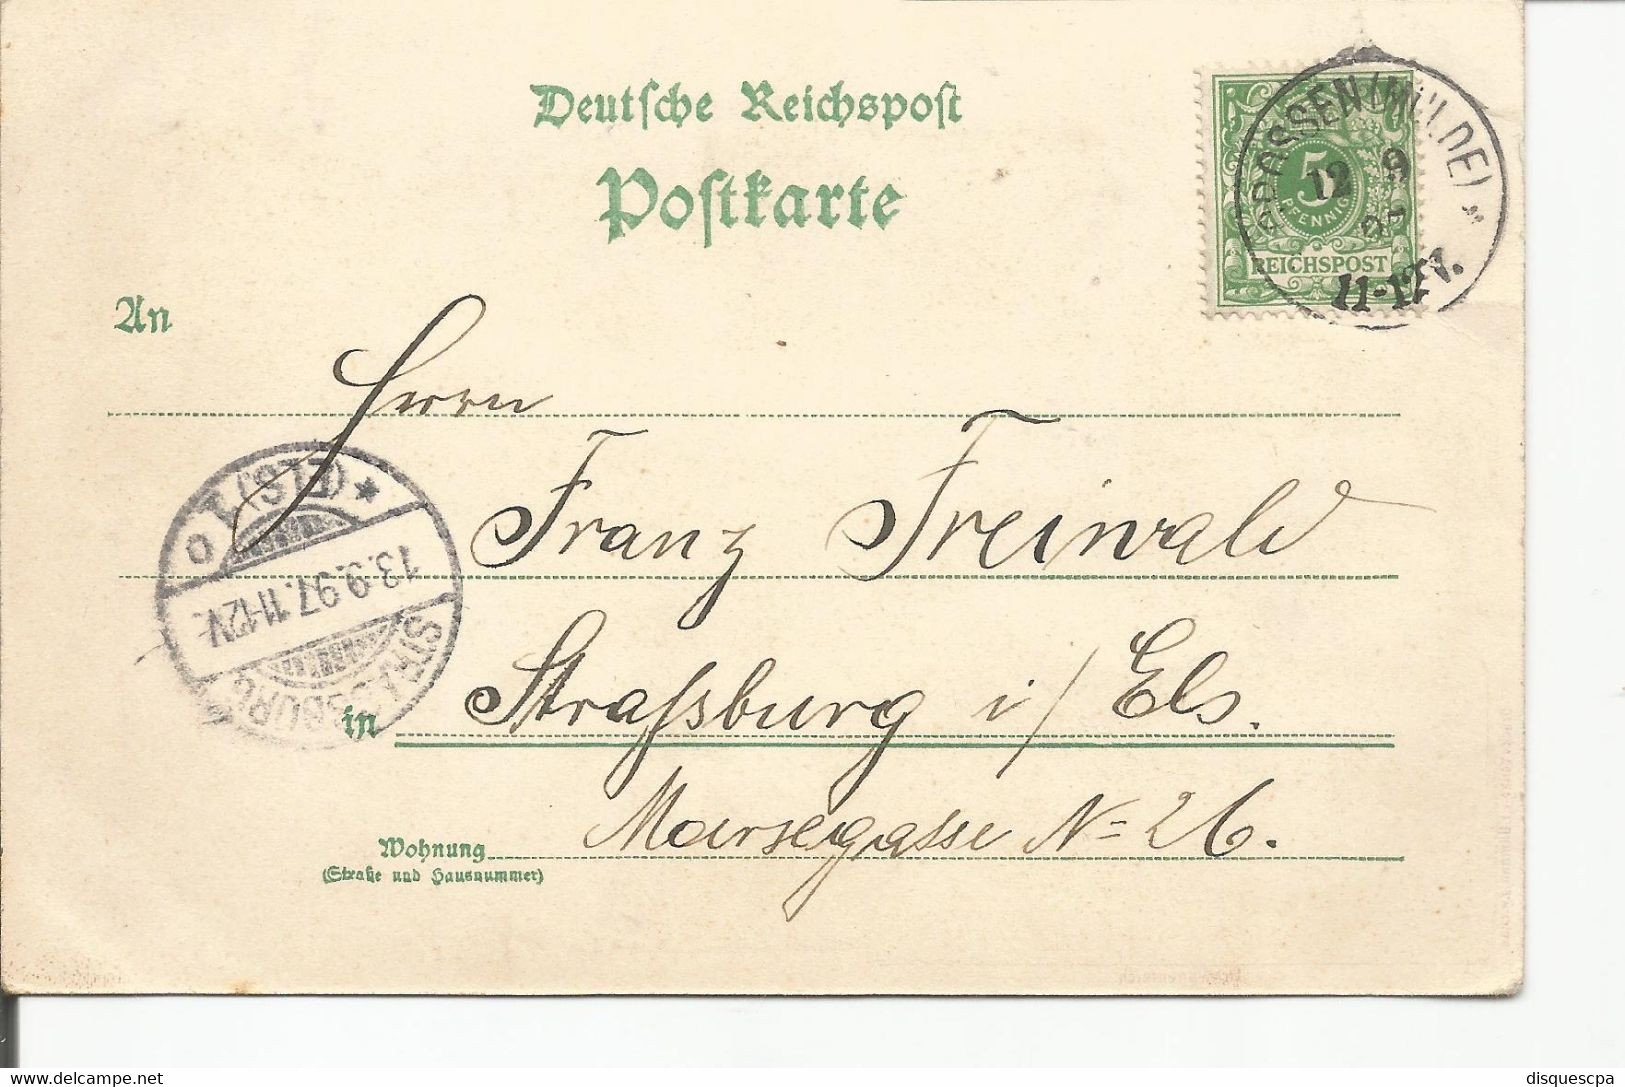 Deutsche Reichspost
Postkarte
5
PFENNIG
REICHSPOST
(MULDE) *
12 9
97
11-12V.
An
Herrn
Franz Freiwald
* (ELS)
13.9.97.11-12V.
STRASSBURG
in Straßburg i/ Els.
Wohnung
(Straße und Hausnummer)
Marsegasse N= 26.
www.delcampe.net
disquescpa